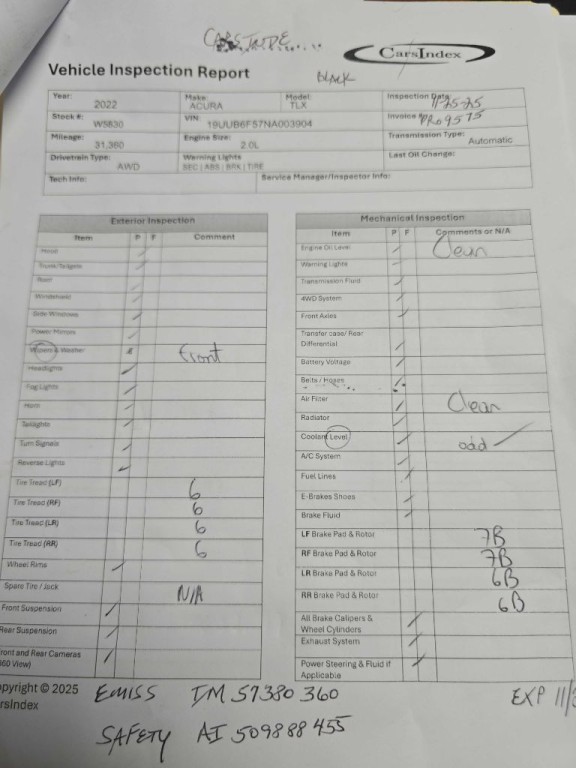 CarsIndex
Vehicle Inspection Report
BLACK
Year: 2022 Make: ACURA Model: TLX Inspection Date: 11-25-25
Stock #: W5830 VIN: 19UUB6F57NA003904 Invoice # PRO9575
Mileage: 31,380 Engine Size: 2.0L Transmission Type: Automatic
Drivetrain Type: AWD Warning Lights SEC | ABS | BRK | TIRE Last Oil Change:
Tech Info: Service Manager/Inspector Info:
Exterior Inspection
Item P F Comment
Hood
Trunk/Tailgate
Roof
Windshield
Side Windows
Power Mirrors
Wipers & Washer Front
Headlights
Fog Lights
Horn
Taillights
Turn Signals
Reverse Lights
Tire Tread (LF) 6
Tire Tread (RF) 6
Tire Tread (LR) 6
Tire Tread (RR) 6
Wheel Rims
Spare Tire / Jack N/A
Front Suspension
Rear Suspension
Front and Rear Cameras
360 View)
Mechanical Inspection
Item P F Comments or N/A
Engine Oil Level Clean
Warning Lights
Transmission Fluid
4WD System
Front Axles
Transfer case/ Rear
Differential
Battery Voltage
Belts / Hoses
Air Filter Clean
Radiator
Coolant Level add
A/C System
Fuel Lines
E-Brakes Shoes
Brake Fluid
LF Brake Pad & Rotor 7B
RF Brake Pad & Rotor 7B
LR Brake Pad & Rotor 6B
RR Brake Pad & Rotor 6B
All Brake Calipers &
Wheel Cylinders
Exhaust System
Power Steering & Fluid if
Applicable
opyright © 2025
rsIndex
EMISS IM 57380360 EXP 11/
SAFETY AI 509888455